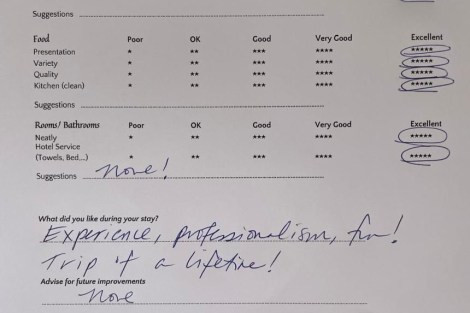 Suggestions
Food Poor OK Good Very Good Excellent
Presentation * ** *** **** *****
Variety * ** *** **** *****
Quality * ** *** **** *****
Kitchen (clean) * ** *** **** *****
Suggestions
Rooms/ Bathrooms Poor OK Good Very Good Excellent
Neatly * ** *** **** *****
Hotel Service
(Towels, Bed,...) * ** *** **** *****
Suggestions None!
What did you like during your stay?
Experience, professionalism, fun!
Trip of a lifetime!
Advise for future improvements
None